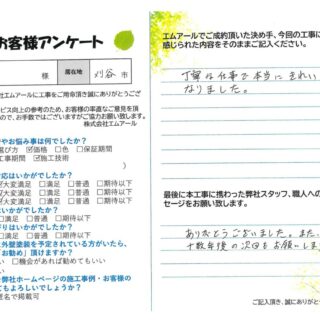 お客様アンケート
様 居住地 刈谷 市
社エムアールに工事をご用命頂き誠にありがとうござ
ビス向上の参考のため、お客様の率直なご意見を頂
ので、お手数ではございますがご協力お願い致します。
株式会社エムアール
やお悩み事は何でしたか?
選び方 ☑価格 □色 □保証期間
工事期間 ☑施工技術
)
対応はいかがでしたか?
☑大変満足 □満足 □普通 □期待以下
☑大変満足 □満足 □普通 □期待以下
☑大変満足 □満足 □普通 □期待以下
はいかがでしたか?
足 □普通 □期待以下
がりはいかがでしたか?
足 □普通 □期待以下
に外壁塗装を予定されている方がいたら、
「お勧め」頂けますか?
い □機会があれば勧めてもいい
い
、弊社ホームページの施工事例・お客様の
てもよろしいでしょうか?
匿名で掲載可
エムアールでご成約頂いた決め手、今回の工事に
感じられた内容をそのままご記入ください。
丁寧な仕事で本当にきれい
なりました。
最後に本工事に携わった弊社スタッフ、職人への
セージをお願い致します。
ありがとうございました。また、
十数年後の次回もお願いしま
ご記入頂き、誠にありがとう